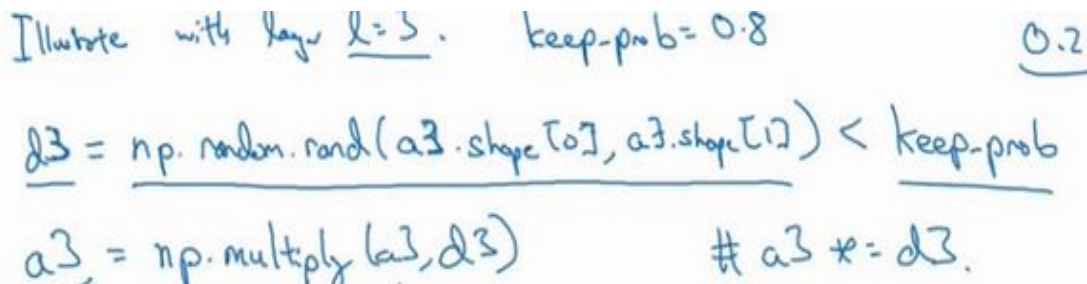 Illustrate with layer l=3. keep-prob= 0.8 0.2
d3 = np.random.rand(a3.shape[0], a3.shape[1]) < keep-prob
a3 = np.multiply(a3,d3) # a3 *= d3.